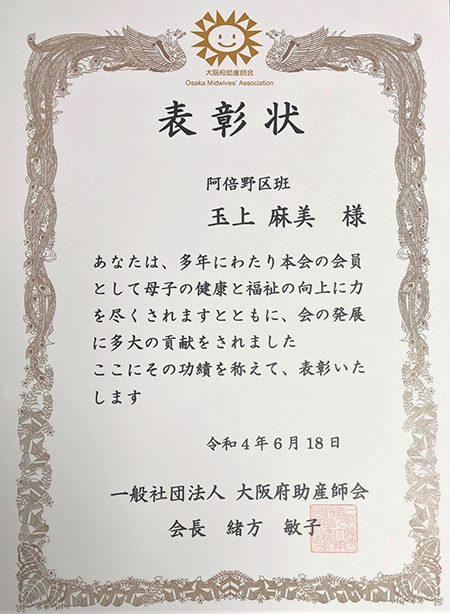 大阪府助産師会
Osaka Midwives' Association
表彰状
阿倍野区班
玉上 麻美 様
あなたは、多年にわたり本会の会員
として母子の健康と福祉の向上に力
を尽くされますとともに、会の発展
に多大の貢献をされました
ここにその功績を称えて、表彰いた
します
令和4年6月18日
一般社団法人 大阪府助産師会
会長 緒方 敏子